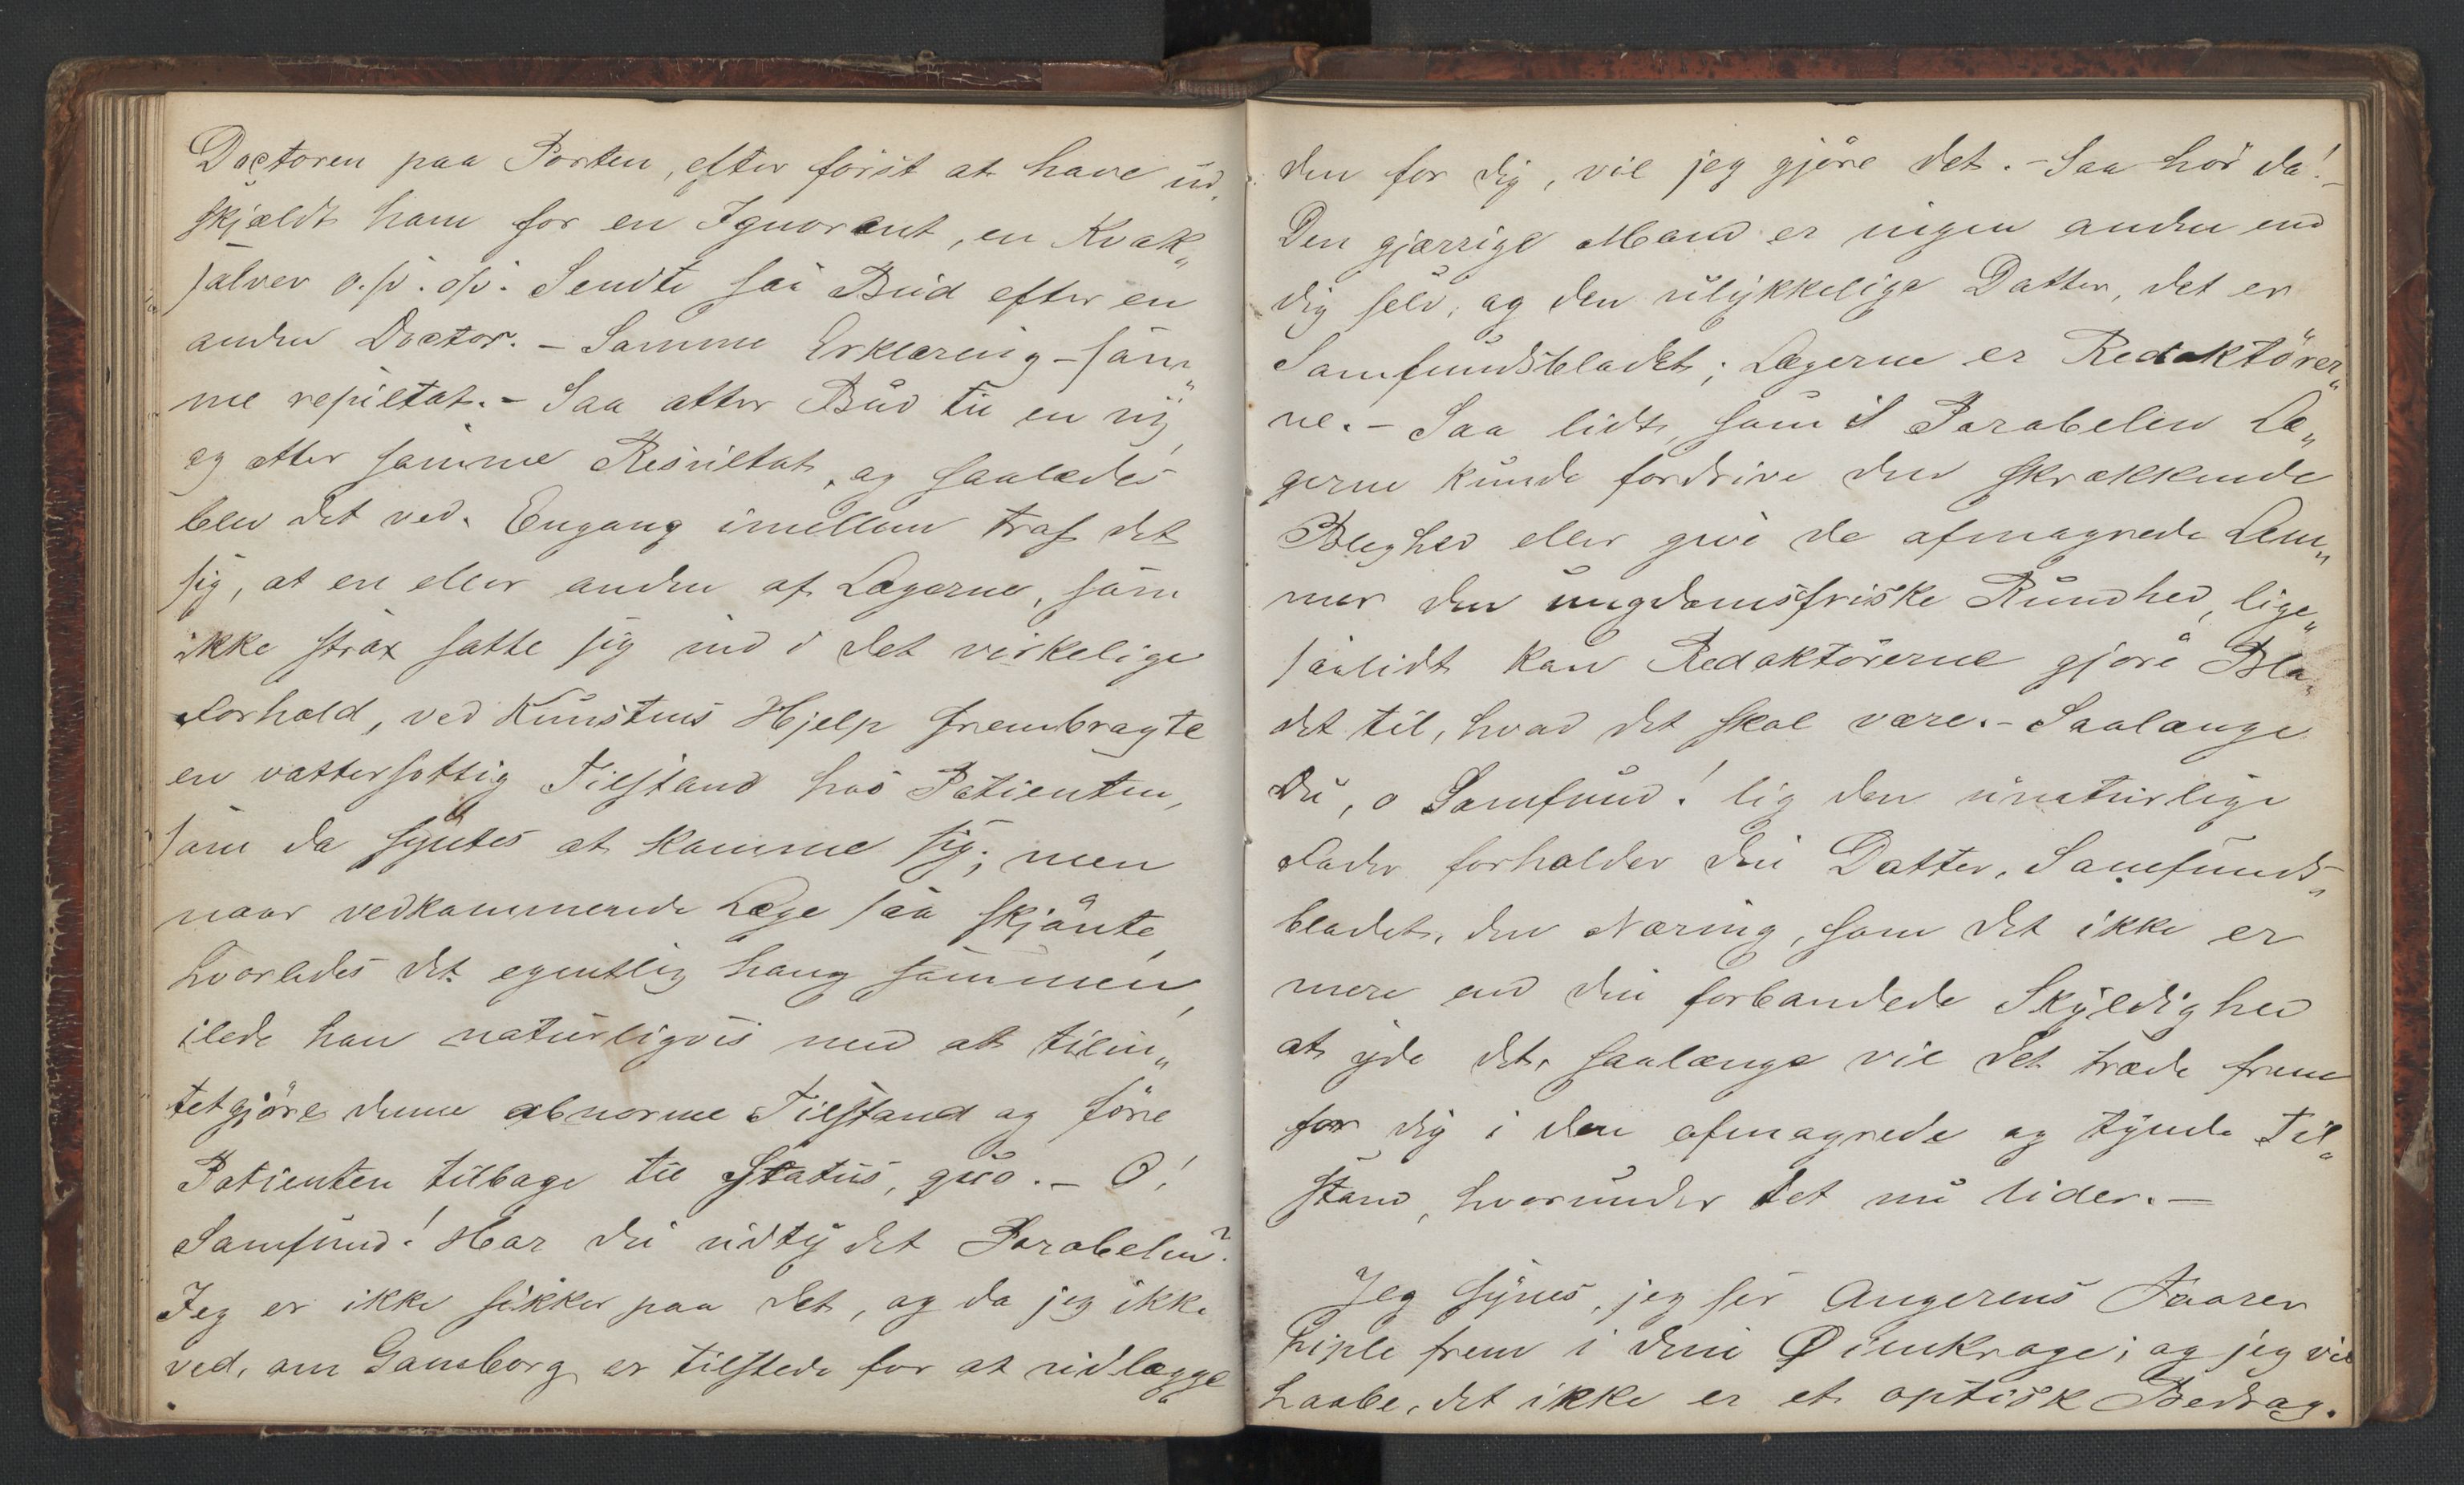 Doctoren paa Porten, efter först at have ud„
skjældt ham for en Ignorant, en Kvak„
salver o.s.v. o.s.v. Sendte saa Bud efter en
anden Doctor. – Samme Erklæring – sam„
me resultat. – Saa atter Bud til en ny
og atter samme Resultat, og saaledes
blev det ved. Engang imellem traf det
sig, at en eller anden af Lægerne, som
ikke strax satte sig ind i det virkelige
Forhold, ved Kunstens Hjelp frembragte
en vattersottig Tilstand hos Patienten,
som da syntes at komme sig; men
naar vedkommende Læge saa skjönte,
hvorledes det egentlig hang sammen,
ilede han naturligvis med at tilin„
tetgjöre denne abnorme Tilstand og före
Patienten tilbage til Status, quo. – O!
Samfund! Har du udtydet Parabelen?
Jeg er ikke sikker paa det, og da jeg ikke
ved, om Gamborg er tilstede for at udlægge
den for dig, vil jeg gjöre det. – Saa hör da! –
Den gjærrige Mand er ingen anden end
dig selv, og den ulykkelige Datter, det er
Samfundsbladet; Lægerne er Redaktörer„
ne. – Saa lidt, som i Parabelen Læ„
gerne kunde fordrive den skrækkende
Bleghed eller give de afmagrede Lem„
mer den ungdomsfriske Rundhed, lige„
saalidt kan Redaktörerne gjöre Bla„
det til, hvad det skal være. – Saalænge
Du, o Samfund! lig den unaturlige
Fader forholder din Datter, Samfunds„
bladet, den Næring, som det ikke er
mere end din forbandede Skyldighed
at yde det, saalænge vil det træde frem
for dig i den afmagrede og tynde Til„
stand, hvorunder det nu lider. –
Jeg synes, jeg ser Angerens Taarer
piple frem i dine Øienkroge; og jeg vil
haabe, det ikke er et optisk Bedrag.